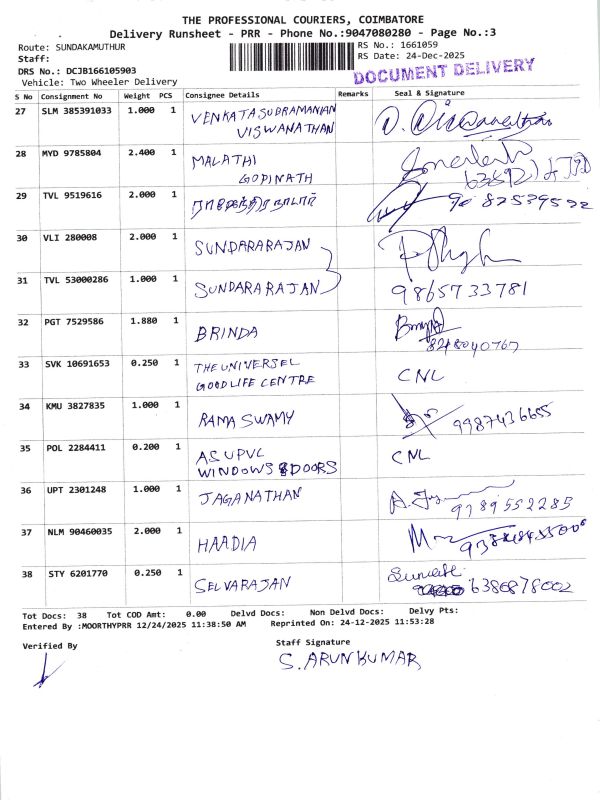 THE PROFESSIONAL COURIERS, COIMBATORE
Delivery Runsheet - PRR - Phone No.:9047080280 - Page No.:3
Route: SUNDAKAMUTHUR RS No.: 1661059
Staff: RS Date: 24-Dec-2025
DRS No.: DCJB166105903 DOCUMENT DELIVERY
Vehicle: Two Wheeler Delivery
S No Consignment No Weight PCS Consignee Details Remarks Seal & Signature
27 SLM 385391033 1.000 1 VENKATASUBRAMANIAN
VISWANATHAN
28 MYD 9785804 2.400 1 MALATHI
GOPINATH
29 TVL 9519616 2.000 1
30 VLI 280008 2.000 1 SUNDARARAJAN
31 TVL 53000286 1.000 1 SUNDARARAJAN 9865733781
32 PGT 7529586 1.880 1 BRINDA
8248040767
33 SVK 10691653 0.250 1 THE UNIVERSEL
GOOD LIFE CENTRE CNL
34 KMU 3827835 1.000 1 RAMA SWAMY 9987436655
35 POL 2284411 0.200 1 AS UPVC
WINDOWS & DOORS CNL
36 UPT 2301248 1.000 1 JAGANATHAN 9789552285
37 NLM 90460035 2.000 1 HAADIA
38 STY 6201770 0.250 1 SELVARAJAN 6380878002
Tot Docs: 38 Tot COD Amt: 0.00 Delvd Docs: Non Delvd Docs: Delvy Pts:
Entered By :MOORTHYPRR 12/24/2025 11:38:50 AM Reprinted On: 24-12-2025 11:53:28
Verified By Staff Signature
S. ARUNKUMAR